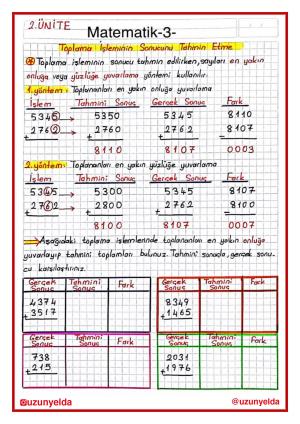 2.ÜNİTE
Matematik-3-
Toplama İşleminin Sonucunu Tahmin Etme
Toplama işleminin sonucu tahmin edilirken, sayıları en yakın
onluğa veya yüzlüğe yuvarlama yöntemi kullanılır.
1.yöntem: Toplananları en yakın onluğa yuvarlama
İşlem Tahmini Sonuç Gerçek Sonuç Fark
5345 → 5350 5345 8110
2762 → 2760 2762 8107
+ + + -
8110 8107 0003
2.yöntem: Toplananları en yakın yüzlüğe yuvarlama
İşlem Tahmini Sonuç Gerçek Sonuç Fark
5345 → 5300 5345 8107
2762 → 2800 2762 8100
+ + + -
8100 8107 0007
Aşağıdaki toplama işlemlerinde toplananları en yakın onluğa
yuvarlayıp tahmini toplamları bulunuz. Tahmini sonucla, gerçek sonu-
cu karşılaştırınız.
Gerçek Sonuç Tahmini Sonuç Fark
4374
+ 3517
Gerçek Sonuç Tahmini Sonuç Fark
8349
+ 1465
Gerçek Sonuç Tahmini Sonuç Fark
738
+ 215
Gerçek Sonuç Tahmini Sonuç Fark
2031
+ 1976
@uzunyelda
@uzunyelda